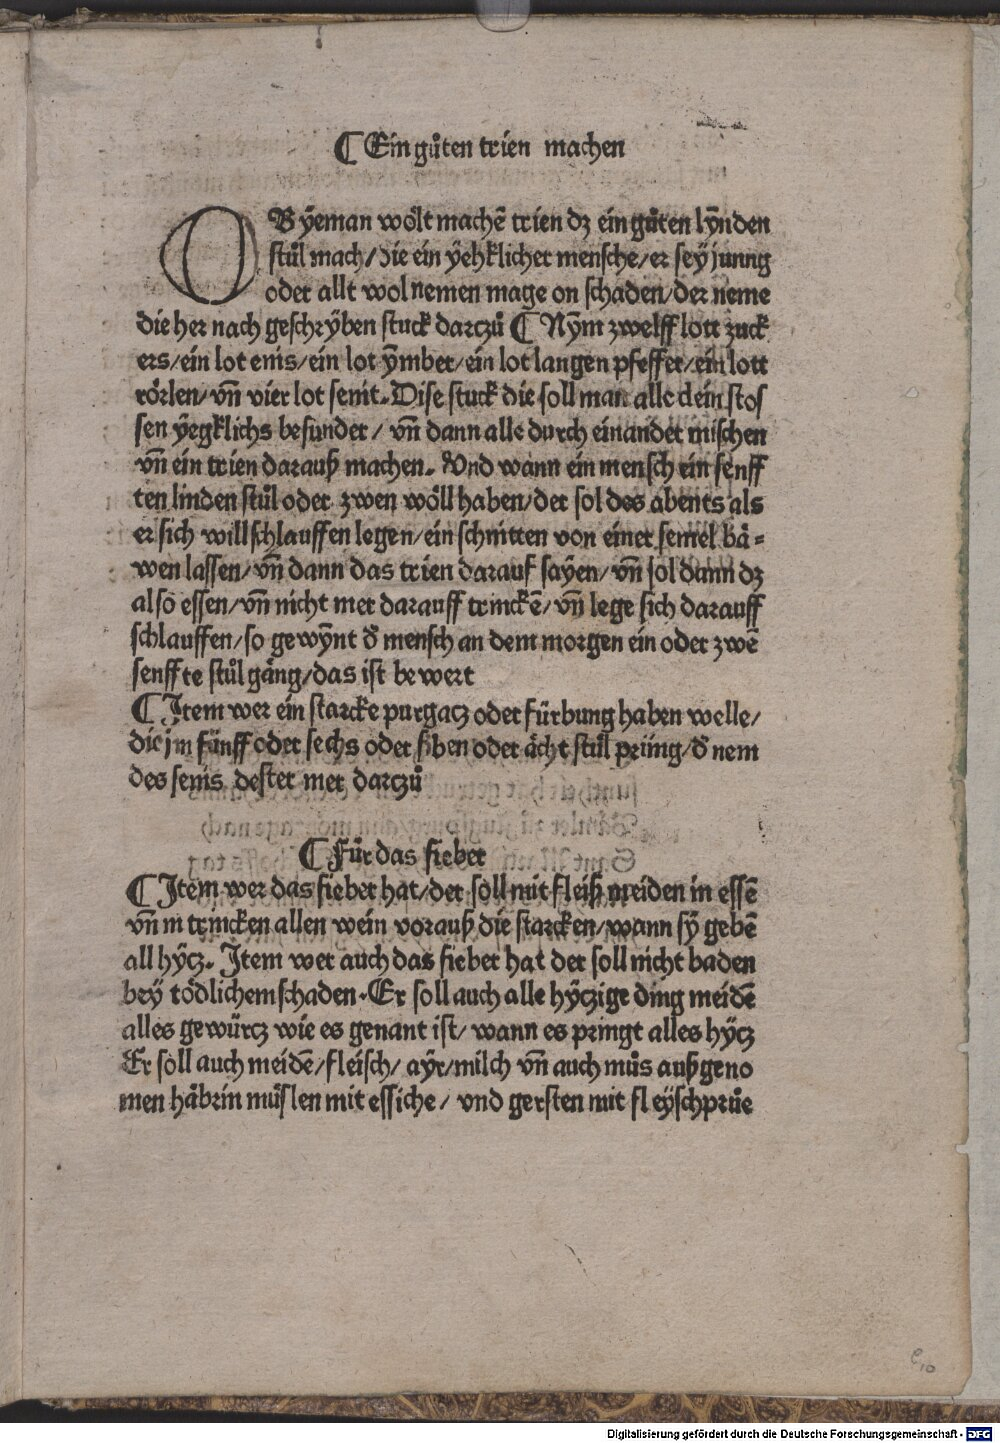 ¶ Ein gůten trien machen
OB yeman wölt machē trien dz ein gůten lÿnden
stůl mach/die ein yehklicher mensche/er sey junng
oder allt wol nemen mage on schaden/der neme
die her nach geschryben stuck darczů ¶ Nÿm zwelff lott zuck
ers/ein lot enis/ein lot ÿmber/ein lot langen pfeffer/ein lott
rörlen/vn̄ vier lot senit. Dise stuck die soll man alle clein stos
sen yegklichs besunder/ vn̄ dann alle durch einander mischen
vn̄ ein trien darauß machen. Vnd wann ein mensch ein senff
ten linden stůl oder zwen wöll haben/der sol des abents als
er sich will schlauffen legen/ein schnitten von einer semel bä⸗
wen lassen/vn̄ dann das trien darauf säyen/vn̄ sol dann dz
also essen/vn̄ nicht mer darauff trinckē/vn̄ lege sich darauff
schlauffen/so gewÿnt d̕ mensch an dem morgen ein oder zwē
senffte stůl gäng/das ist bewert
¶ Item wer ein starcke purgacz oder fürbung haben welle/
die jm fünff oder sechs oder siben oder ächt stůl priing/d̕ nem
des senis dester mer darczů
¶ Für das fieber
¶ Item wer das fieber hat/der soll mit fleiß meiden in essē
vn̄ in trincken allen wein vorauß die starcken/wann sÿ gebē
all hÿcz. Item wer auch das fieber hat der soll nicht baden
bey tödlichem schaden. Er soll auch alle hÿczige ding meidē
alles gewürcz wie es genant ist/ wann es pringt alles hÿcz
Er soll auch meidē/fleisch/ ayr/milch vn̄ auch můs außgeno
men häbrin müslen mit essiche/ vnd gersten mit fleyschprůe
e10
Digitalisierung gefördert durch die Deutsche Forschungsgemeinschaft - DFG